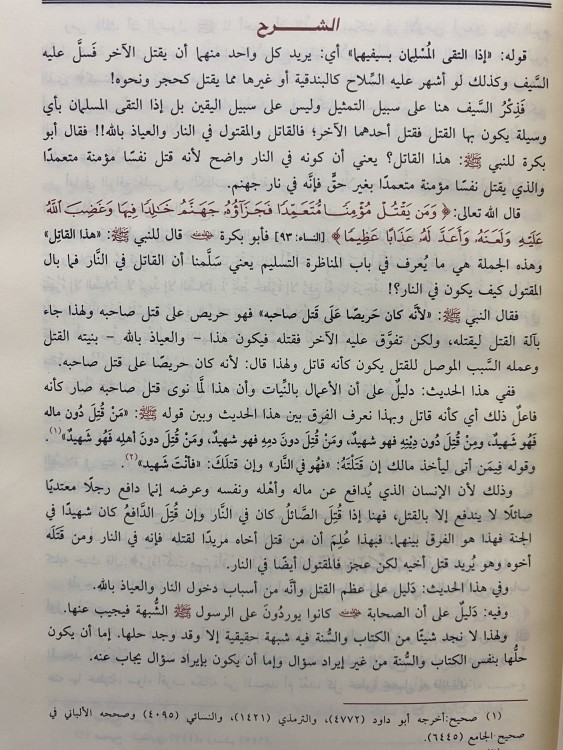 الشـــــرح
قوله: «إذا التقى المُسْلِمان بسيفيهما» أي: يريد كل واحد منهما أن يقتل الآخر فَسلَّ عليه
السَّيف وكذلك لو أشهر عليه السِّلاح كالبندقية أو غيرها مما يقتل كحجر ونحوه!
فَذِكْرُ السَّيف هنا على سبيل التمثيل وليس على سبيل اليقين بل إذا التقى المسلمان بأي
وسيلة يكون بها القتل فقتل أحدهما الآخر؛ فالقاتل والمقتول في النار والعياذ بالله!! فقال أبو
بكرة للنبي ﷺ: هذا القاتل؟ يعني أن كونه في النار واضح لأنه قتل نفسًا مؤمنة متعمدًا
والذي يقتل نفسًا مؤمنة متعمدًا بغير حقٍّ فإنَّه في نار جهنم.
قال الله تعالى: ﴿ وَمَن يَقْتُلْ مُؤْمِنًا مُّتَعَمِّدًا فَجَزَآؤُهُۥ جَهَنَّمُ خَٰلِدًا فِيهَا وَغَضِبَ ٱللَّهُ
عَلَيْهِ وَلَعَنَهُۥ وَأَعَدَّ لَهُۥ عَذَابًا عَظِيمًا ﴾ [النساء: ٩٣] فأبو بكرة ﵁ قال للنبي ﷺ: «هذا القاتل»
وهذه الجملة هي ما يُعرف في باب المناظرة التسليم يعني سَلَّمنا أن القاتل في النَّار فما بال
المقتول كيف يكون في النار؟!
فقال النبي ﷺ: «لأنَّه كان حَريصًا عَلَى قَتل صاحبه» فهو حريص على قتل صاحبه ولهذا جاء
بآلة القتل ليقتله، ولكن تفوَّق عليه الآخر فقتله فيكون هذا – والعياذ بالله – بنيته القتل
وعمله السَّبب الموصل للقتل يكون كأنه قاتل ولهذا قال: لأنه كان حريصًا على قتل صاحبه.
ففي هذا الحديث: دليلٌ على أن الأعمال بالنِّيات وأن هذا لمَّا نوى قتل صاحبه صار كأنه
فاعلُ ذلك أي كأنه قاتل وبهذا نعرف الفرق بين هذا الحديث وبين قوله ﷺ: «مَنْ قُتِلَ دُون ماله
فَهُو شَهيدٌ، ومِنْ قُتِلَ دُون دِيْنِه فهو شهيدٌ، ومَنْ قُتِلَ دونَ دمِهِ فهو شهيدٌ، ومَنْ قُتِلَ دونَ أهلِهِ فَهُو شَهيدٌ»(١).
وقوله فيمَن أتى ليأخذ مالك إن قَتَلْتَهُ: «فهُو في النَّار» وإن قتلَكَ: «فأنْتَ شَهيد»(٢).
وذلك لأن الإنسان الذي يُدافع عن ماله وأهْله ونفسه وعرضه إنما دافع رجلًا معتديًا
صائلًا لا يندفع إلا بالقتل، فهنا إذا قُتِلَ الصَّائلُ كان في النَّار وإن قُتِلَ الدَّافعُ كان شهيدًا في
الجنة فهذا هو الفرق بينهما. فبهذا عُلِمَ أن من قتل أخاه مريدًا لقتله فإنه في النار. ومن قَتَلَه
أخوه وهو يُريد قتل أخيه لكن عجز فالمقتول أيضًا في النار.
وفي هذا الحديث: دَليل على عظم القتل وأنَّه من أسباب دخول النار والعياذ بالله.
وفيه: دَليلٌ على أن الصحابة ﵃ كانوا يوردُونَ على الرسول ﷺ الشُّبهة فيجيب عنها.
ولهذا لا نجد شيئًا من الكتاب والسُّنة فيه شبهة حقيقية إلا وقد وجد حلها. إما أن يكون
حلُّها بنفس الكتاب والسُّنة من غير إيراد سؤال وإما أن يكون بإيراد سؤال يجاب عنه.
(١) صحيح:أخرجه أبو داود (٤٧٧٢)، والترمذي (١٤٢١)، والنسائي (٤٠٩٥) وصححه الألباني في
صحيح الجامع (٦٤٤٥).